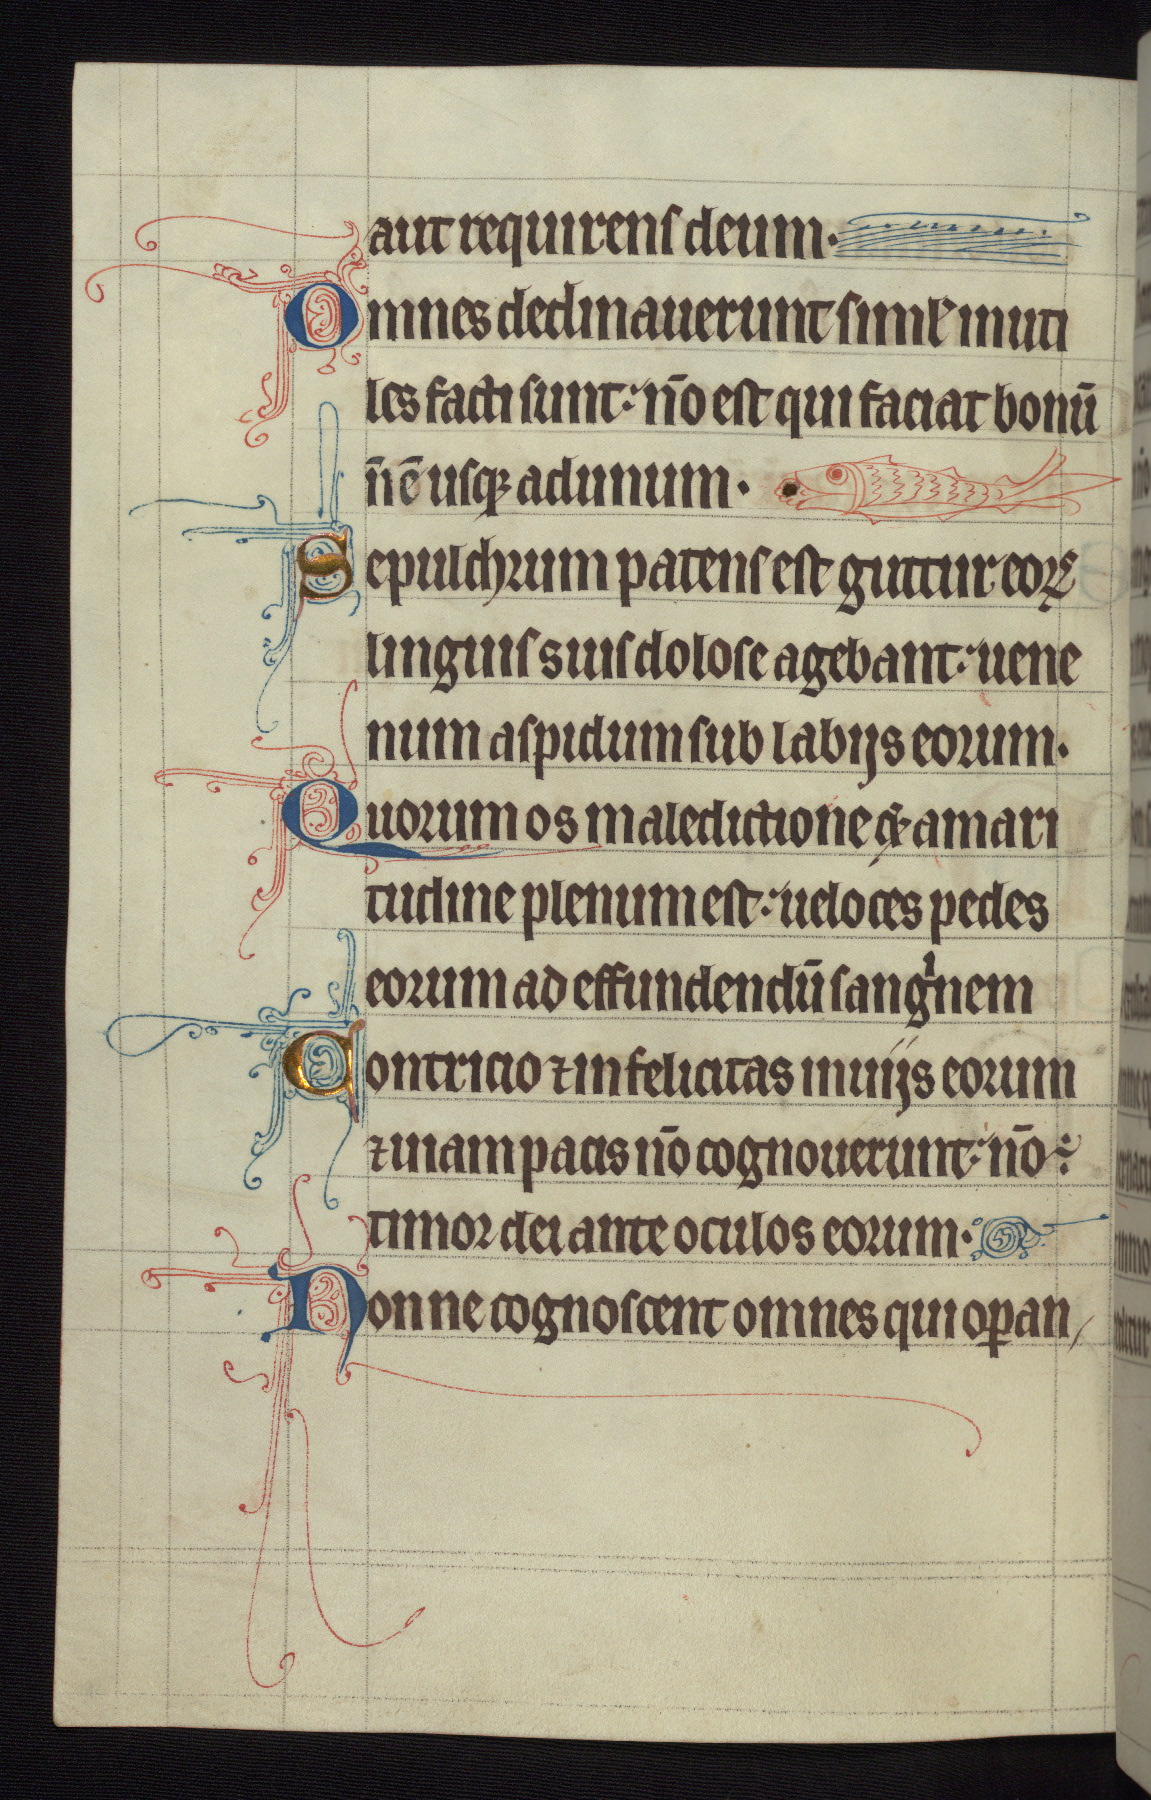 aut requirens deum.
Omnes declinauerunt siml' inuti
les facti sunt: nō est qui faciat bonū
n̄ ē usq; ad unum.
Sepulchrum patens est guttur eoꝝ
linguis suis dolose agebant: uene
num aspidum sub labijs eorum.
Quorum os maledictione & amari
tudine plenum est: ueloces pedes
eorum ad effundendū sangⁱnem
Contricio ⁊ infelicitas in uijs eorum
⁊ uiam pacis nō cognouerunt: nō ē
timor dei ante oculos eorum.
Nonne cognoscent omnes qui oꝑan